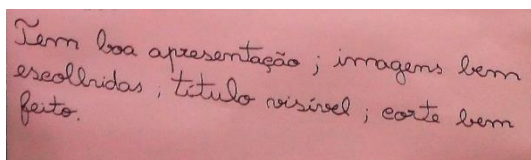 Tem boa apresentação ; imagens bem
escolhidas ; título visível ; corte bem
feito.